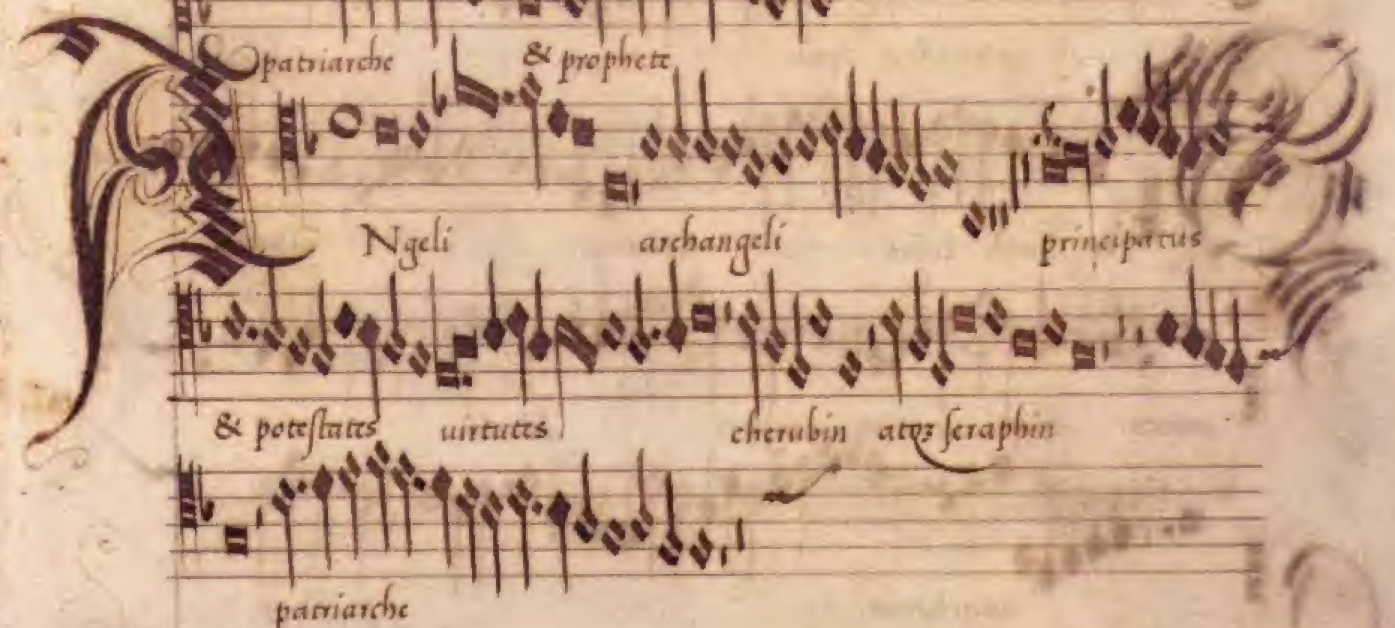 patriarche & prophete
Ngeli archangeli principatus
& potestates uirtutes cherubin atqꝫ seraphin
patriarche